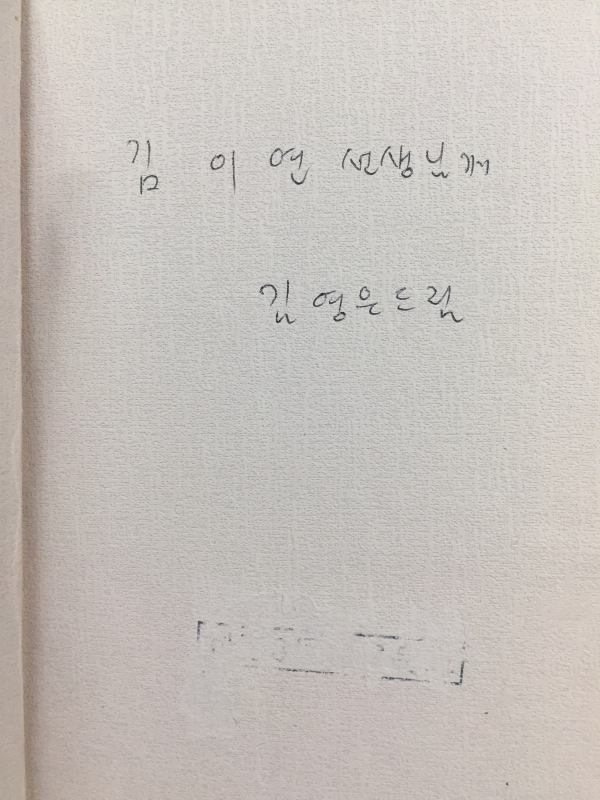 김 이연 선생님께
김영은드림